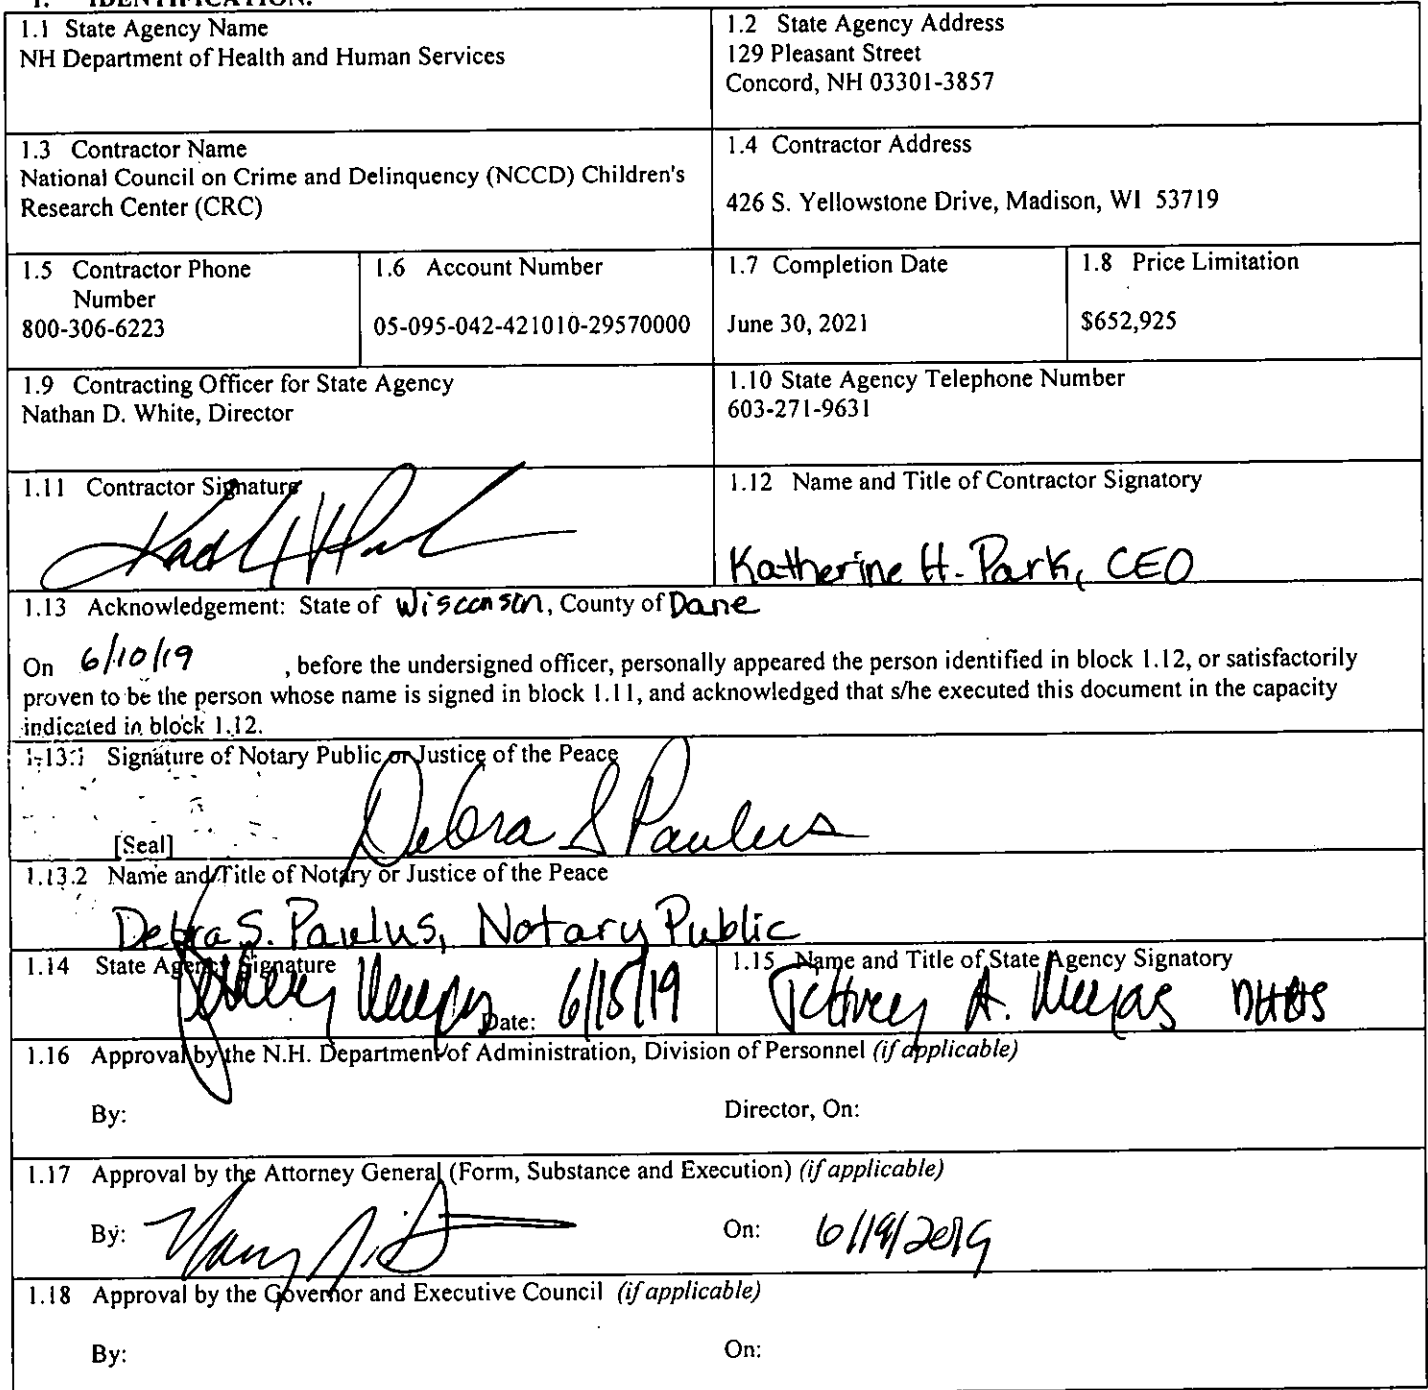 1. IDENTIFICATION.
1.1 State Agency Name
NH Department of Health and Human Services
1.2 State Agency Address
129 Pleasant Street
Concord, NH 03301-3857
1.3 Contractor Name
National Council on Crime and Delinquency (NCCD) Children's
Research Center (CRC)
1.4 Contractor Address
426 S. Yellowstone Drive, Madison, WI 53719
1.5 Contractor Phone
Number
800-306-6223
1.6 Account Number
05-095-042-421010-29570000
1.7 Completion Date
June 30, 2021
1.8 Price Limitation
$652,925
1.9 Contracting Officer for State Agency
Nathan D. White, Director
1.10 State Agency Telephone Number
603-271-9631
1.11 Contractor Signature
1.12 Name and Title of Contractor Signatory
Katherine H. Park, CEO
1.13 Acknowledgement: State of Wisconsin, County of Dane
On 6/10/19 , before the undersigned officer, personally appeared the person identified in block 1.12, or satisfactorily
proven to be the person whose name is signed in block 1.11, and acknowledged that s/he executed this document in the capacity
indicated in block 1.12.
1.13.1 Signature of Notary Public or Justice of the Peace
Debra S Paulus
[Seal]
1.13.2 Name and Title of Notary or Justice of the Peace
Debra S. Paulus, Notary Public
1.14 State Agency Signature
Date: 6/15/19
1.15 Name and Title of State Agency Signatory
Jeffrey A.
1.16 Approval by the N.H. Department of Administration, Division of Personnel (if applicable)
By: Director, On:
1.17 Approval by the Attorney General (Form, Substance and Execution) (if applicable)
By: On: 6/19/2019
1.18 Approval by the Governor and Executive Council (if applicable)
By: On: